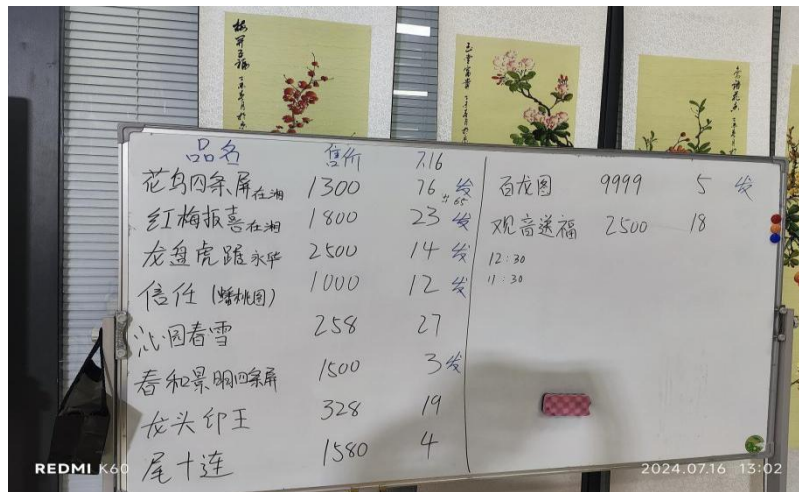 品名 售价 7.16
花鸟四条屏在湘 1300 76 发
共65
红梅报喜在湘 1800 23 发
龙盘虎踞永华 2500 14 发
信任(蟠桃图) 1000 12 发
沁园春雪 258 27
春和景明四条屏 1500 3 发
龙头印王 328 19
尾十连 1580 4
百龙图 9999 5 发
观音送福 2500 18
12:30
11:30
REDMI K60
2024.07.16 13:02